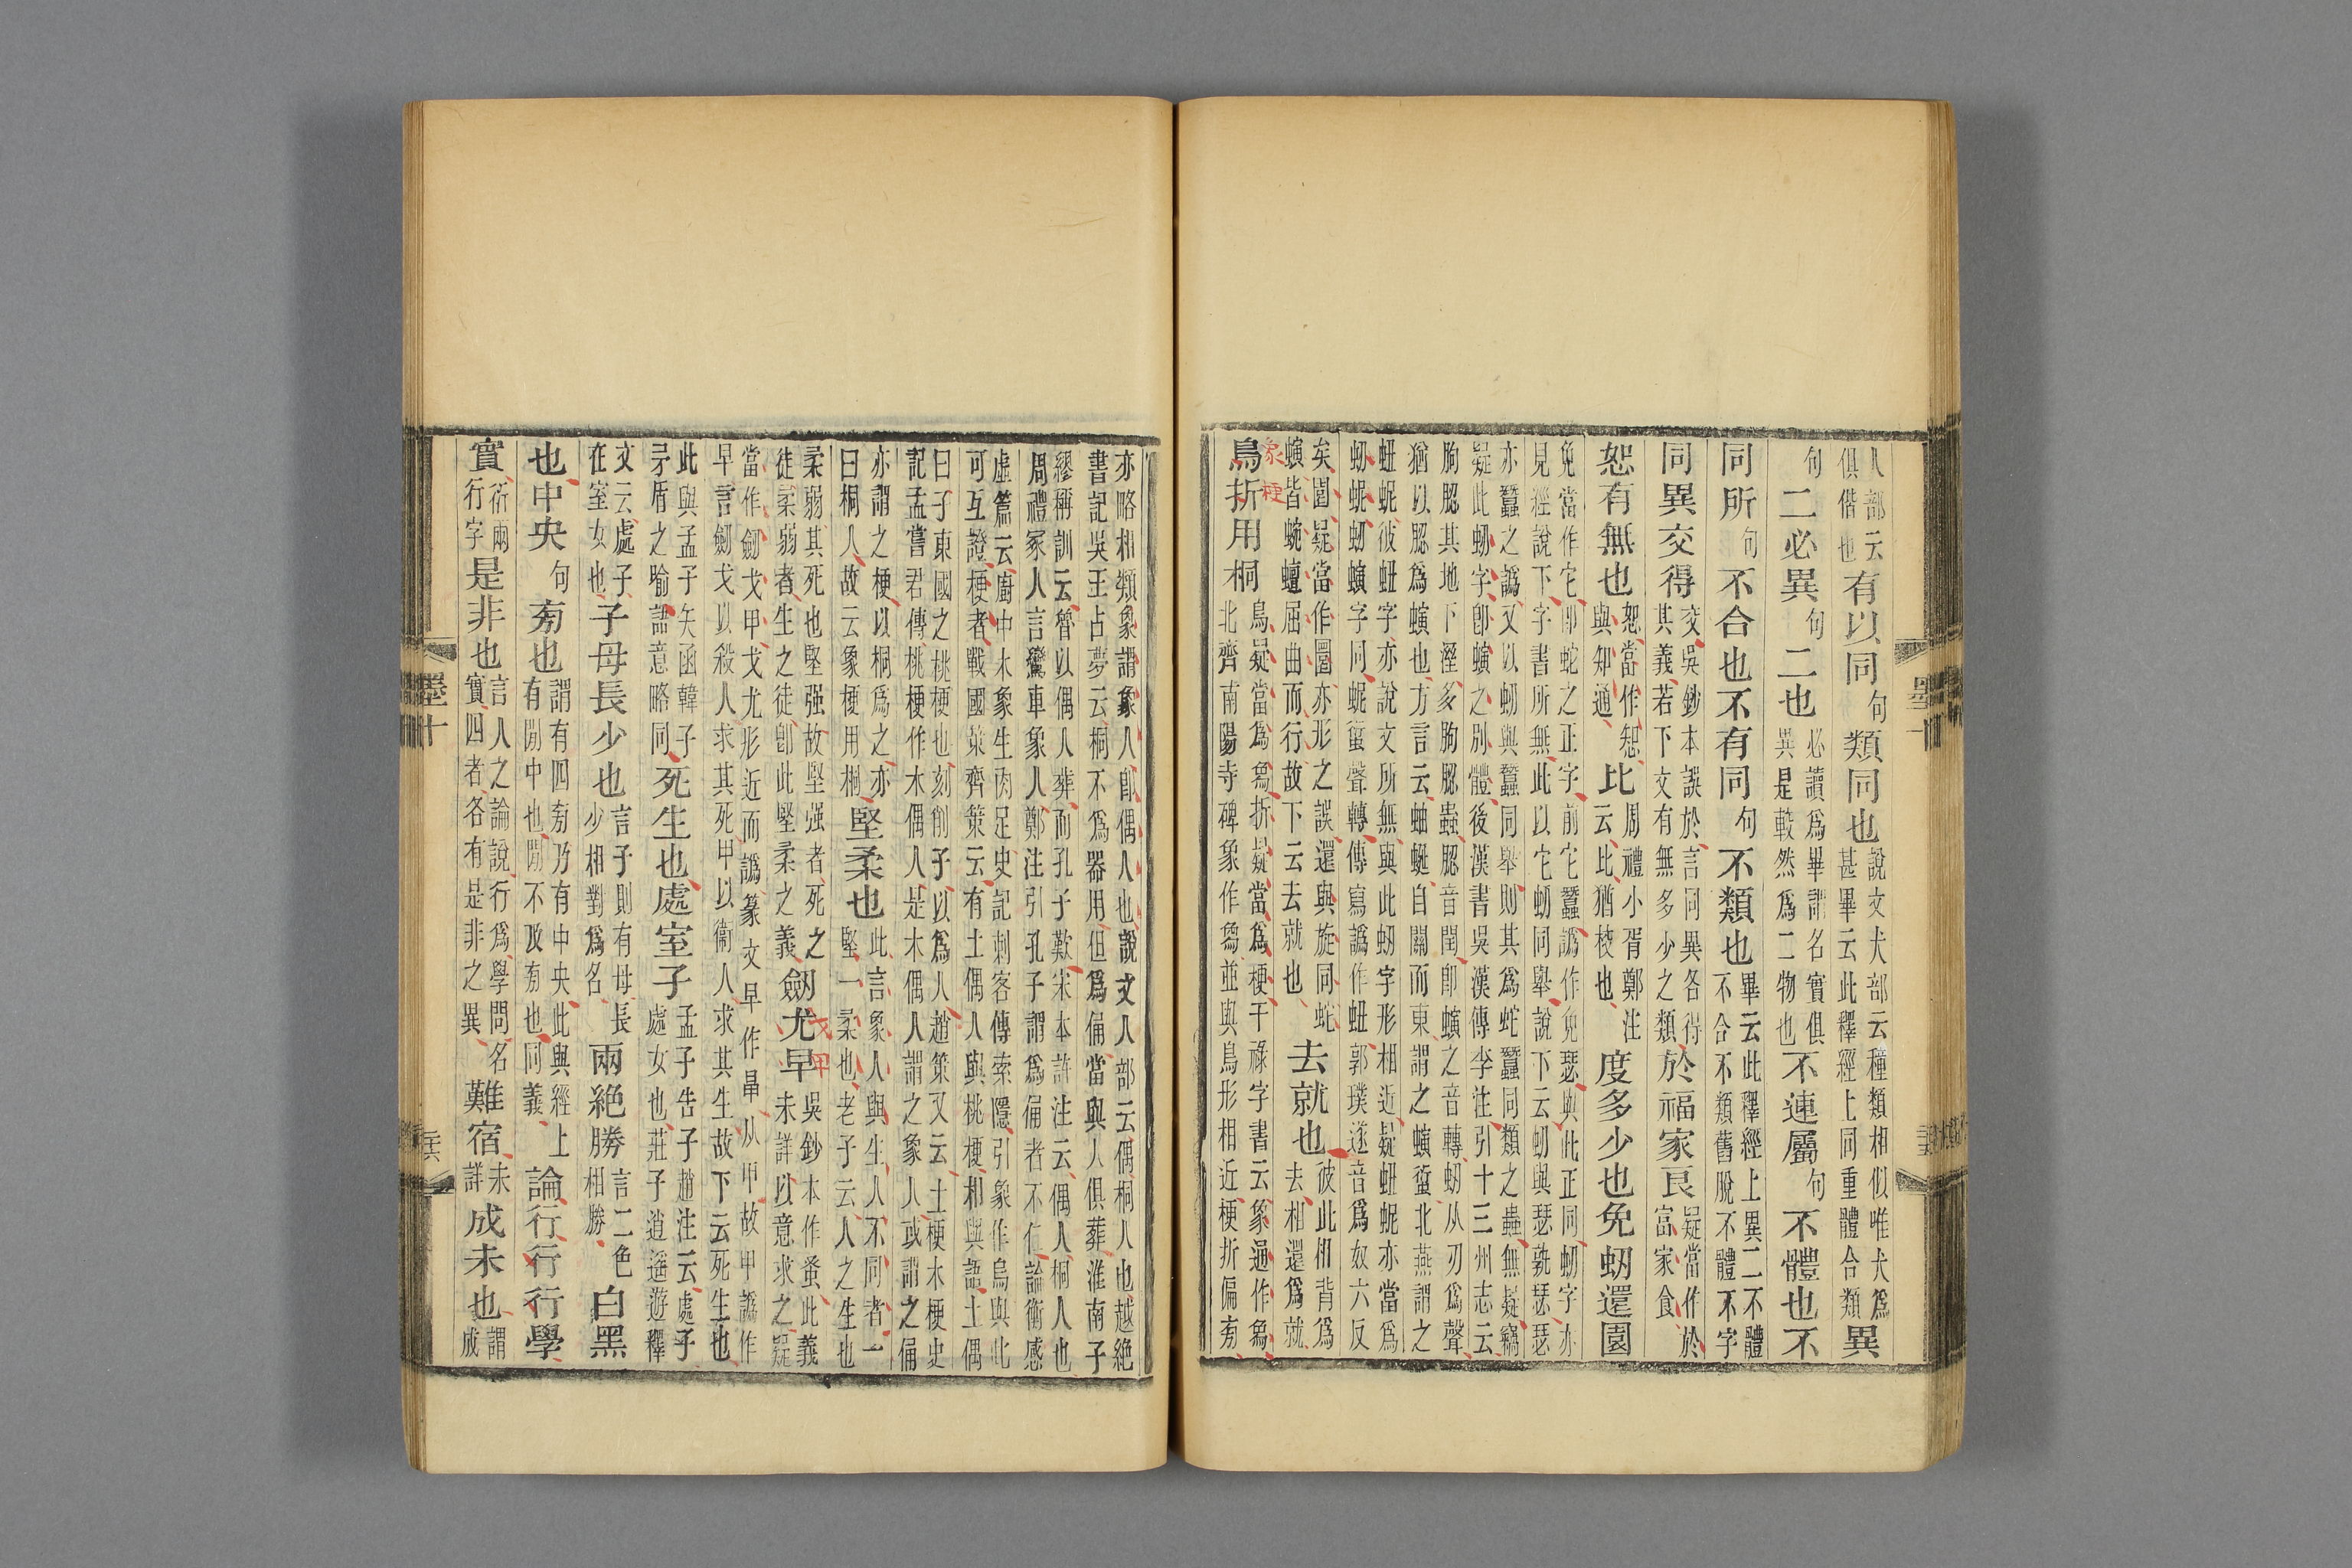 人部云俱偕也有以同句類同也說文犬部云種類相似唯犬爲甚畢云此釋經上同重體合類異
句二必異句二也必讀爲畢謂名實俱異是較然爲二物也不連屬句不體也不
同所句不合也不有同句不類也畢云此釋經上異二不體不合不類舊脫不體不字
同異交得交吳鈔本誤於言同異各得其義若下文有無多少之類於福家良疑當作於富家食
恕有無也恕當作恕與知通比周禮小胥鄭注云比猶校也度多少也免蚓還園
免當作宅卽蛇之正字前宅蠶譌作免瑟與此正同蚓字亦
見經說下字書所無此以宅蚓同舉說下云蚓與瑟孰瑟瑟
亦蠶之譌又以蚓與蠶同舉則其爲蛇蠶同類之蟲無疑竊
疑此蚓字卽螾之別體後漢書吳漢傳李注引十三州志云
朐䏰其地下溼多朐䏰蟲䏰音閏卽螾之音轉蚓从刃爲聲
猶以䏰爲螾也方言云蚰蜒自關而東謂之螾蜸北燕謂之
蚭彼字亦說文所無與此蚓字形相近疑蚭亦當爲
蚓蚭蚓螾字同蚭蜸聲轉傳寫譌作郭璞遂音爲奴六反
矣園疑當作圜亦形之誤還與旋同蛇螾皆蜿蟺屈曲而行故下云去就也去就也彼此相背爲去相還爲就
鳥折用桐鳥疑當爲爲折疑當爲梗干祿字書云象通作爲北齊南陽寺碑象作爲並與鳥形相近梗折偏旁
象梗
亦略相類象謂象人卽偶人也說文人部云偶桐人也越絕
書記吳王占夢云桐不爲器用但爲俑當與人俱葬淮南子
繆稱訓云魯以偶人葬而孔子歎宋本許注云偶人桐人也
周禮冢人言鸞車象人鄭注引孔子謂爲俑者不仁論衡感
虛篇云廚中木象生肉足史記刺客傳索隱引象作烏與此
可互證梗者戰國策齊策云有土偶人與桃梗相與語土偶
曰子東國之桃梗也刻削子以爲人趙策又云土梗木梗史
記孟嘗君傳桃梗作木偶人是木偶人謂之象人或謂之俑
亦謂之梗以桐爲之亦曰桐人故云象梗用桐堅柔也此言象人與生人不同者一堅一柔也老子云人之生也
柔弱其死也堅强故堅强者死之徒柔弱者生之徒卽此堅柔之義劒尤早吳鈔本作蚤此義未詳以意求之疑
戈甲
當作劒戈甲戈尤形近而譌篆文早作𣅊从甲故甲譌作
早言劒戈以殺人求其死甲以衞人求其生故下云死生也
此與孟子矢函韓子矛盾之喻語意略同死生也處室子孟子告子趙注云處子處女也莊子逍遥遊釋
文云處子在室女也子母長少也言子則有母長少相對爲名兩絕勝言二色相勝白黑
也中央句旁也謂有四旁乃有中央此與經上有閒中也閒不及旁也同義論行行行學
實衍兩行字是非也言人之論說行爲學問名實四者各有是非之異難宿未詳成未也謂成
墨十